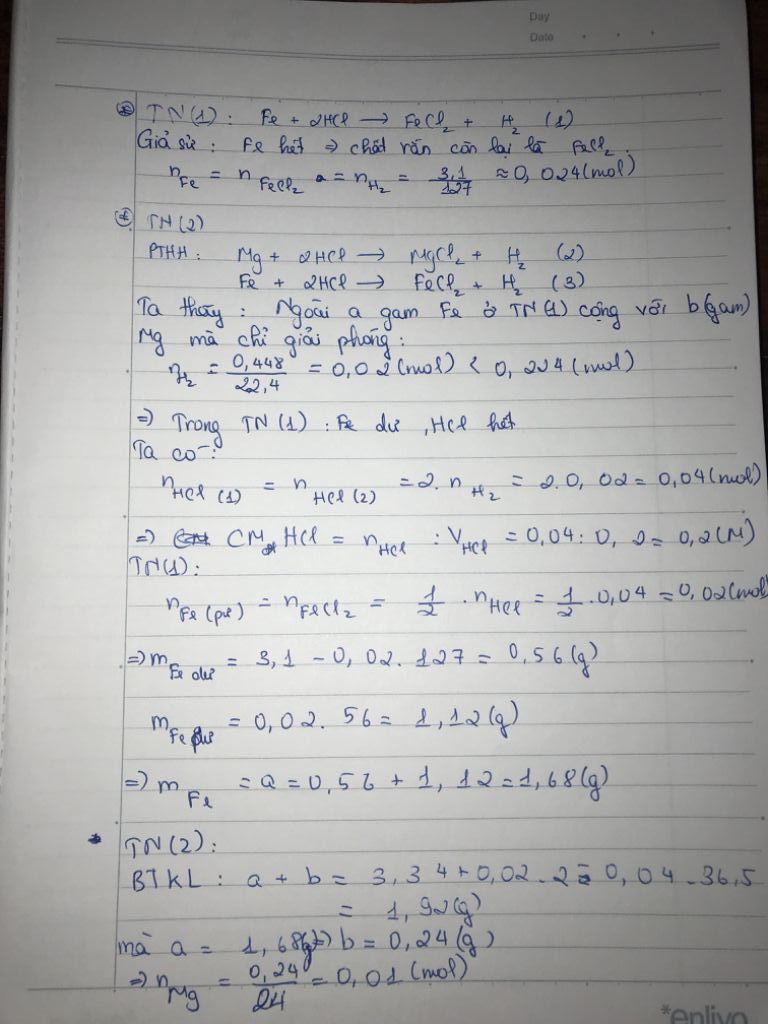 Day
Date . . .
* TN(1): Fe + 2HCl → FeCl₂ + H₂ (1)
Giả sử: Fe hết ⇒ chất rắn còn lại là FeCl₂.
n_Fe = n_FeCl₂ = n_H₂ = 3,1/127 ≈ 0,024(mol)
* TN(2)
PTHH: Mg + 2HCl → MgCl₂ + H₂ (2)
Fe + 2HCl → FeCl₂ + H₂ (3)
Ta thấy: Ngoài a gam Fe ở TN(1) cộng với b(gam)
Mg mà chỉ giải phóng:
n_H₂ = 0,448/22,4 = 0,02(mol) < 0,224(mol)
⇒ Trong TN(1): Fe dư, HCl hết
Ta có:
n_HCl (1) = n_HCl (2) = 2. n_H₂ = 2.0,02 = 0,04(mol)
⇒ CM HCl = n_HCl : V_HCl = 0,04 : 0,2 = 0,2(M)
TN(1):
n_Fe (pư) = n_FeCl₂ = 1/2 . n_HCl = 1/2 . 0,04 = 0,02(mol)
⇒ m_Fe dư = 3,1 - 0,02.127 = 0,56(g)
m_Fe pư = 0,02.56 = 1,12(g)
⇒ m_Fe = a = 0,56 + 1,12 = 1,68(g)
* TN(2):
BTKL: a + b = 3,34 + 0,02.2 - 0,04.36,5
= 1,92(g)
mà a = 1,68g ⇒ b = 0,24(g)
⇒ n_Mg = 0,24/24 = 0,01(mol)
*enlivo